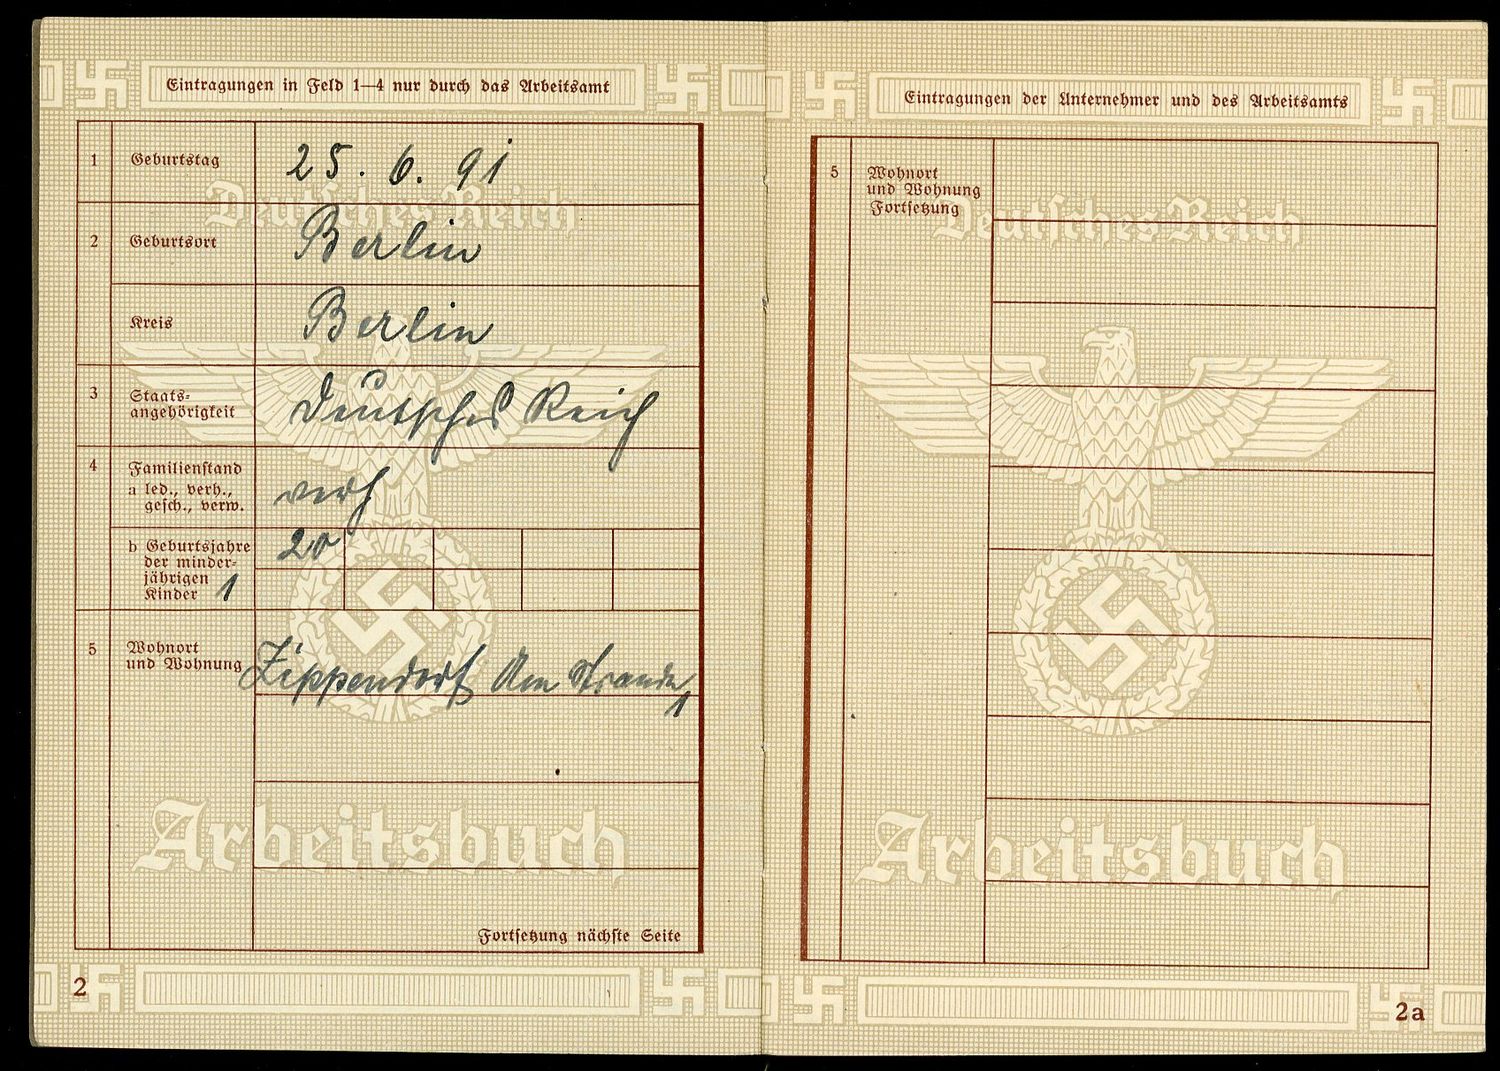 Eintragungen in Feld 1—4 nur durch das Arbeitsamt
1 Geburtstag 25. 6. 91
Deutsches Reich
2 Geburtsort Berlin
Kreis Berlin
3 Staats-
angehörigkeit Deutsches Reich
4 Familienstand
a led., verh., verh
gesch., verw.
b Geburtsjahre 20
der minder-
jährigen
Kinder 1
5 Wohnort
und Wohnung Zippendorf Am Strande
1
Arbeitsbuch
Fortsetzung nächste Seite
2
Eintragungen der Unternehmer und des Arbeitsamts
5 Wohnort
und Wohnung
Fortsetzung
Deutsches Reich
Arbeitsbuch
2a